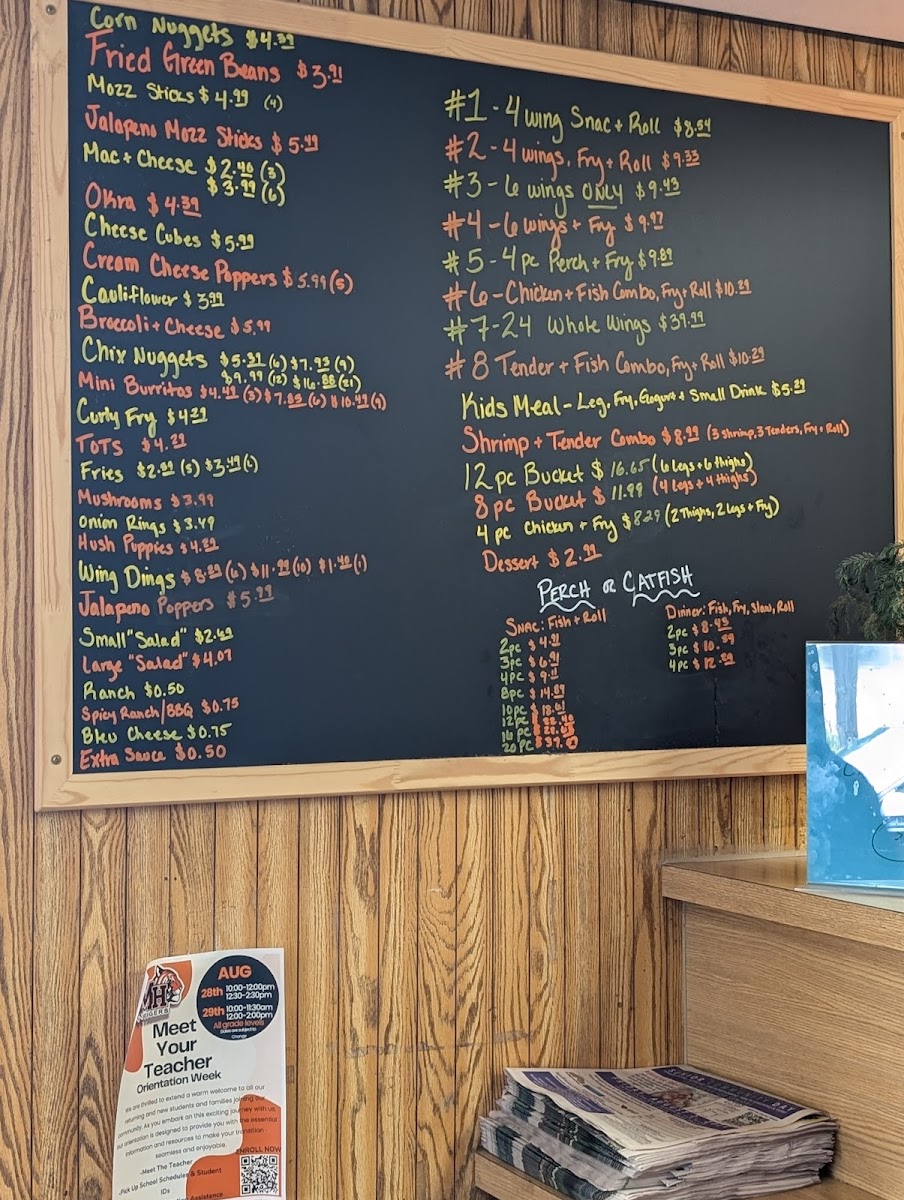 Corn Nuggets $4.39
Fried Green Beans $3.91
Mozz Sticks $4.99 (4)
Jalapeno Mozz Sticks $5.49
Mac + Cheese $2.40 (3)
$3.99 (6)
Okra $4.39
Cheese Cubes $5.99
Cream Cheese Poppers $5.99 (5)
Cauliflower $3.99
Broccoli + Cheese $5.99
Chix Nuggets $5.31 (6) $7.93 (9)
$9.99 (12) $16.88 (21)
Mini Burritos $4.49 (3) $7.85 (6) $10.49 (9)
Curly Fry $4.29
TOTS $4.29
Fries $2.89 (S) $3.49 (L)
Mushrooms $3.99
Onion Rings $3.49
Hush Puppies $4.89
Wing Dings $8.29 (6) $11.99 (10) $1.40 (1)
Jalapeno Poppers $5.99
Small "Salad" $2.69
Large "Salad" $4.07
Ranch $0.50
Spicy Ranch/BBQ $0.75
Bleu Cheese $0.75
Extra Sauce $0.50
#1 - 4 wing Snac + Roll $8.54
#2 - 4 wings, Fry + Roll $9.33
#3 - 6 wings ONLY $9.43
#4 - 6 wings + Fry $9.97
#5 - 4 pc Perch + Fry $9.89
#6 - Chicken + Fish Combo, Fry + Roll $10.29
#7 - 24 Whole Wings $39.99
#8 Tender + Fish Combo, Fry + Roll $10.29
Kids Meal - Leg, Fry, Gogurt + Small Drink $5.29
Shrimp + Tender Combo $8.99 (3 shrimp, 3 Tenders, Fry + Roll)
12 pc Bucket $16.65 (6 legs + 6 thighs)
8 pc Bucket $11.99 (4 Legs + 4 thighs)
4 pc Chicken + Fry $8.29 (2 Thighs, 2 Legs + Fry)
Dessert $2.99
PERCH or CATFISH
SNAC: Fish + Roll
2pc $4.
3pc $6.
4pc $9.
8pc $14.89
10pc $18.
12pc $22.40
16pc
20pc $37.
Dinner: Fish, Fry, Slaw, Roll
2pc $8.
3pc $10.
4pc $12.
MH
AUG
28th 10:00-12:00pm
12:30-2:30pm
29th 10:00-11:30am
12:00-2:00pm
All grade levels
Dates are subject to
Change
Meet
Your
Teacher
Orientation Week
We are thrilled to extend a warm welcome to all our
returning and new students and families joining our
community. As you embark on this exciting journey with us,
our orientation is designed to provide you with the essential
information and resources to make your transition
seamless and enjoyable.
-Meet The Teacher
-Pick Up School Schedules & Student
IDs
Assistance
ENROLL NOW